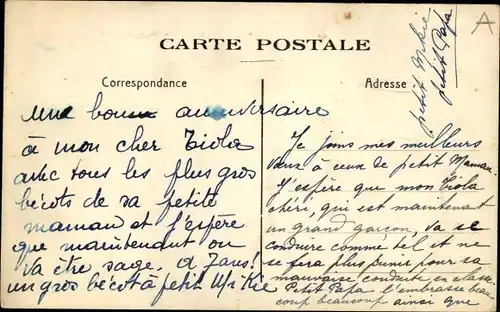 CARTE POSTALE
Correspondance
Adresse
A
petit
petit Papa
une bonne anniversaire
à mon cher Tiola
avec tous les plus gros
bécots de sa petite
maman et j'espère
que maintenant on
va être sage. 2 Jans!
un gros bécot à petit Mi Kie
Je joins mes meilleurs
vœux à ceux de petit Maman.
J'espère que mon Tiola
chéri, qui est maintenant
un grand garçon, va se
conduire comme tel et ne
se fera plus punir pour sa
mauvaise conduite en classe.
Petit Papa l'embrasse beau
coup beaucoup ainsi que